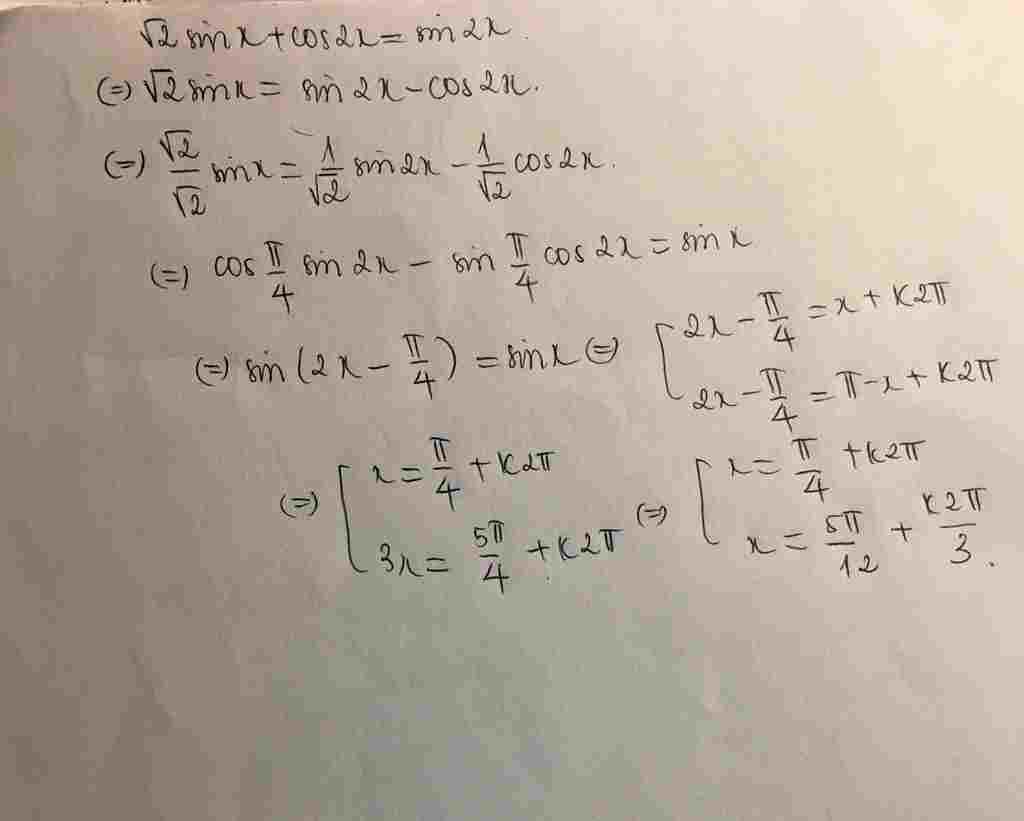 √2 sin x + cos 2x = sin 2x.
(=) √2 sin x = sin 2x - cos 2x.
(=) √2/√2 sin x = 1/√2 sin 2x - 1/√2 cos 2x.
(=) cos π/4 sin 2x - sin π/4 cos 2x = sin x
(=) sin (2x - π/4) = sin x (=) [ 2x - π/4 = x + k2π
2x - π/4 = π - x + k2π
(=) [ x = π/4 + k2π (=) [ x = π/4 + k2π
3x = 5π/4 + k2π x = 5π/12 + k2π/3.